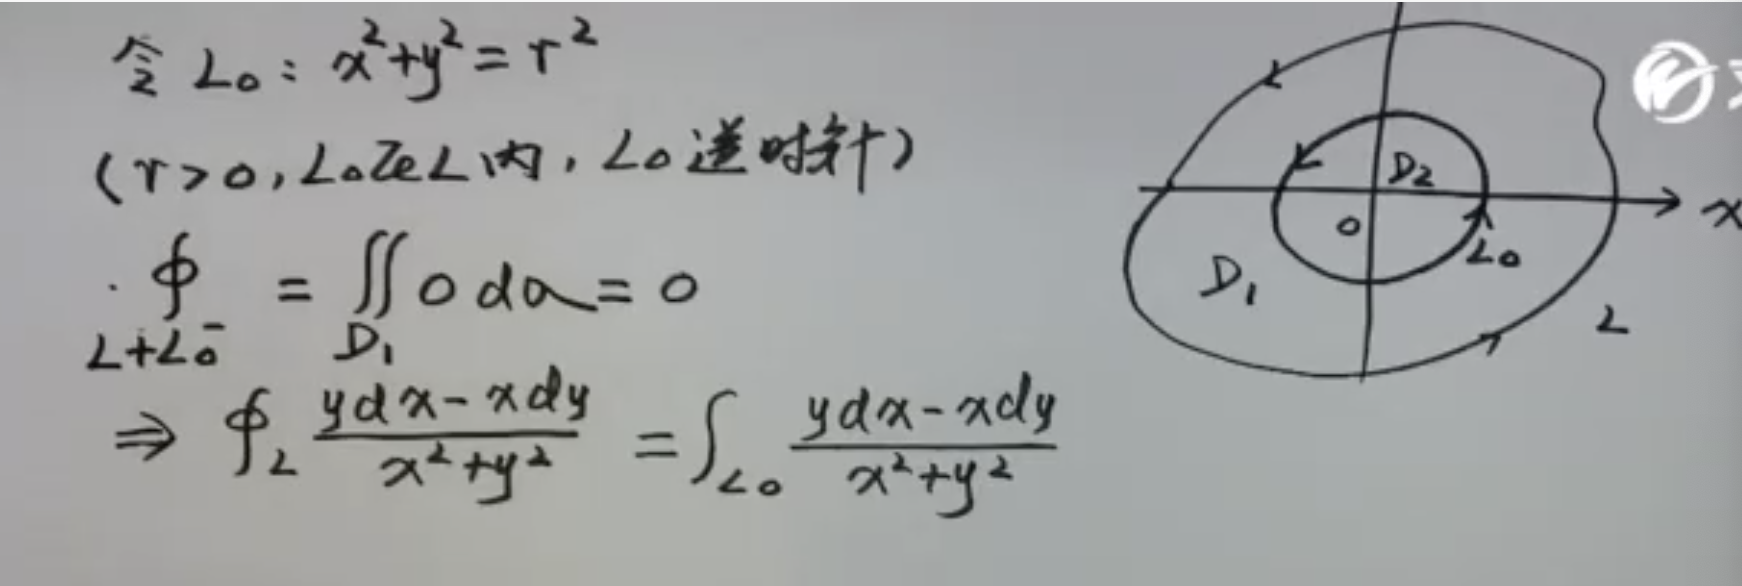 令 L₀: x²+y²=r²
(r>0, L₀在L内, L₀逆时针)
∮_{L+L₀⁻} = ∬_{D₁} 0 dσ = 0
⇒ ∮_L (ydx-xdy)/(x²+y²) = ∫_{L₀} (ydx-xdy)/(x²+y²)
D₂
x
0
L₀
D₁
L